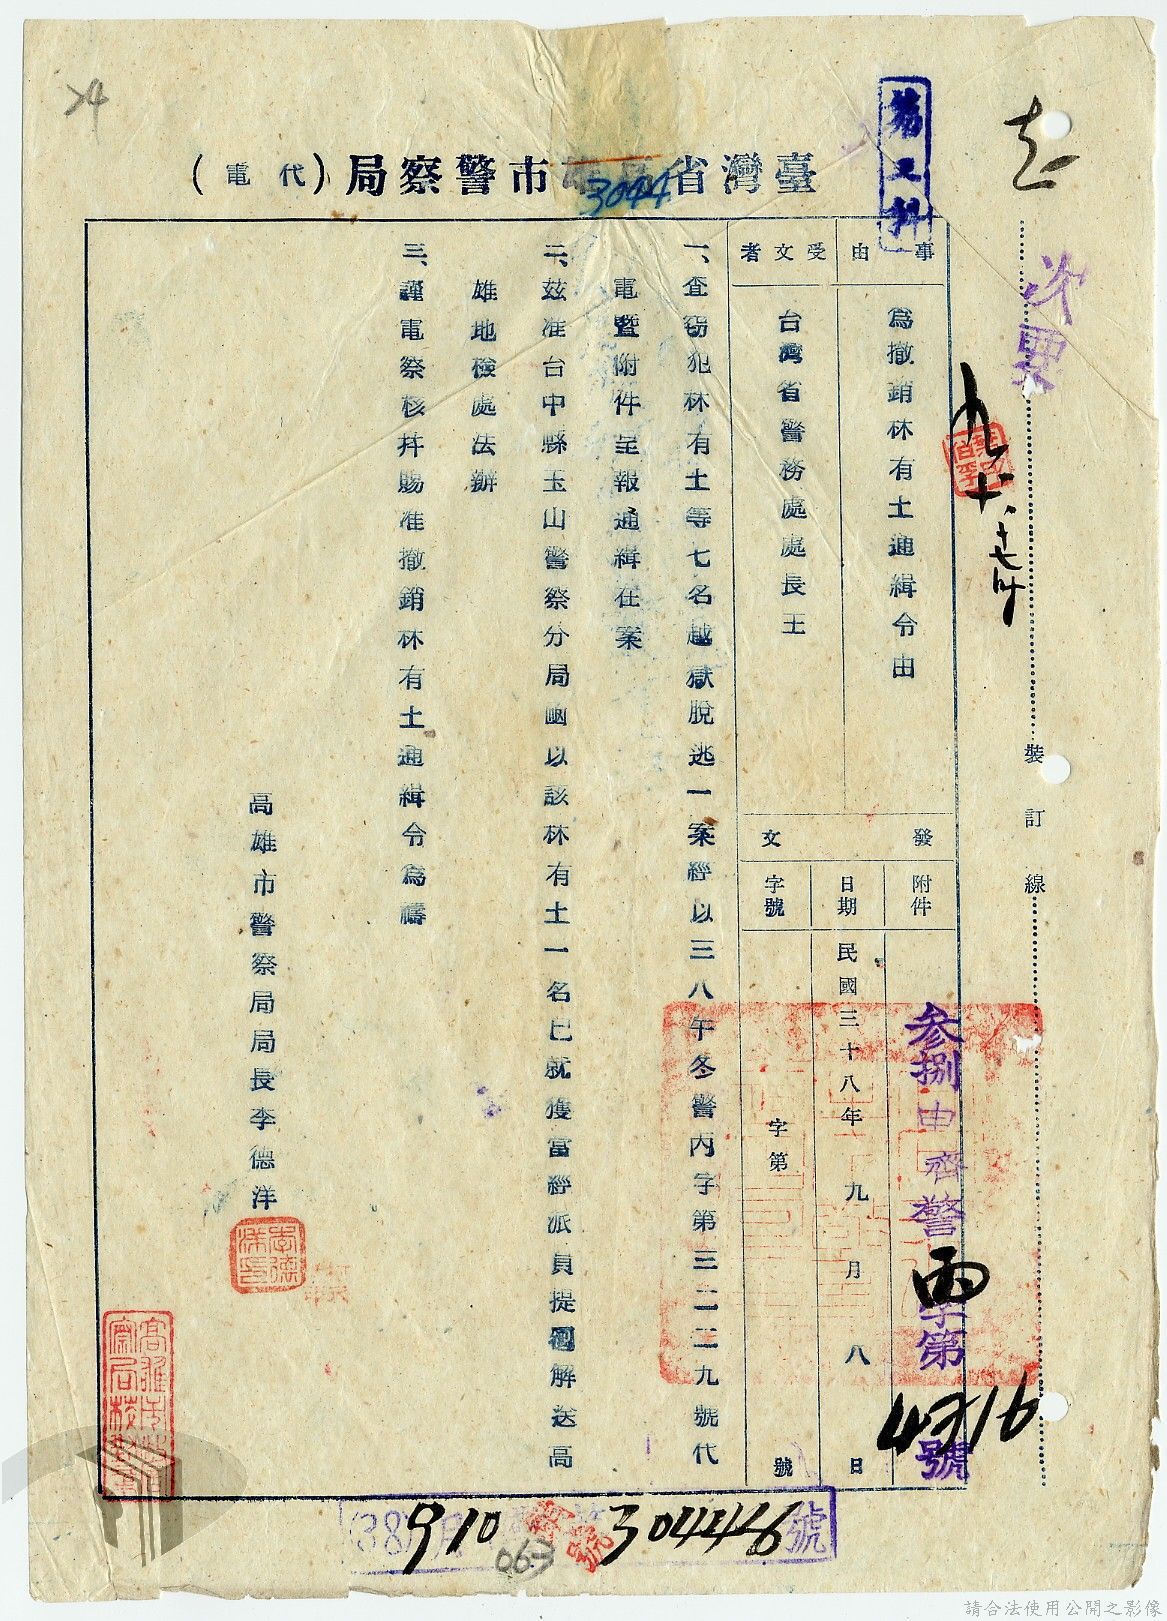 臺灣省高雄市警察局(代電)
3044
第三科
24
次要
裝訂線
事由
為撤銷林有土通緝令由
受文者
台灣省警務處處長王
發文
附件
日期
民國三十八年九月八日
字號
字第號
參捌申齊警丙字第4316號
一、查竊犯林有土等七名越獄脫逃一案經以三八午冬警丙字第三二二九號代
電暨附件呈報通緝在案
二、茲准台中縣玉山警察分局函以該林有土一名已就獲當經派員提回解送高
雄地檢處法辦
三、謹電察核并賜准撤銷林有土通緝令為禱
高雄市警察局局長李德洋
(38)9月10 30446號
063
請合法使用公開之影像